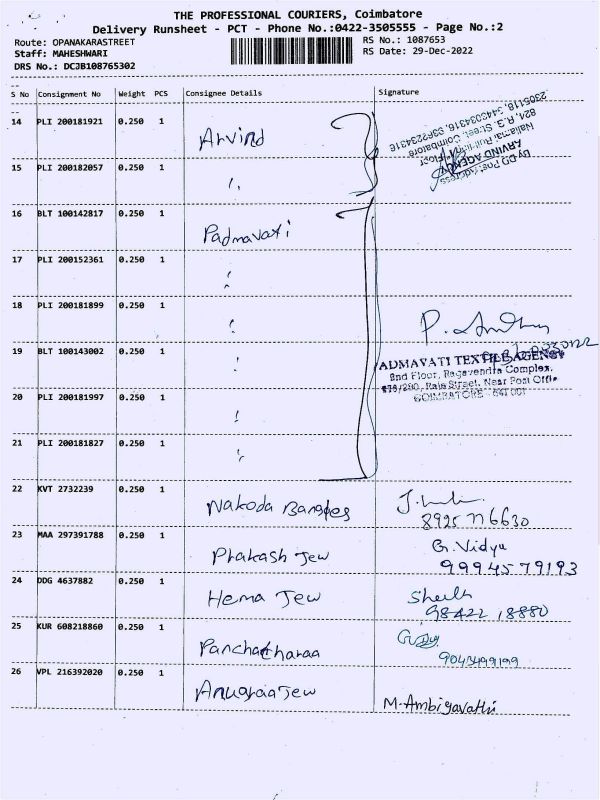 THE PROFESSIONAL COURIERS, Coimbatore
Delivery Runsheet - PCT - Phone No.:0422-3505555 - Page No.:2
Route: OPANAKARASTREET
RS No.: 1087653
Staff: MAHESHWARI
RS Date: 29-Dec-2022
DRS No.: DCJB108765302
S No Consignment No Weight PCS Consignee Details Signature
14 PLI 200181921 0.250 1 Arvind
ARVIND AGENCY
824, R.G. Street, Coimbatore
15 PLI 200182057 0.250 1 "
16 BLT 100142817 0.250 1 Padmavati
17 PLI 200152361 0.250 1 "
18 PLI 200181899 0.250 1 "
19 BLT 100143002 0.250 1 "
ADMAVATI TEXTILE AGENCY
2nd Floor, Ragavendra Complex,
Raja Street, Near Post Office
COIMBATORE - 641 001
20 PLI 200181997 0.250 1 "
21 PLI 200181827 0.250 1 "
22 KVT 2732239 0.250 1 Nakoda Bangles
8925776630
23 MAA 297391788 0.250 1 Prakash Jew G. Vidya
9994579193
24 DDG 4637882 0.250 1 Hema Jew
98422 18880
25 KUR 608218860 0.250 1 Panchatharaa
9043499199
26 VPL 216392020 0.250 1 Anugraa Jew M. Ambigavathi